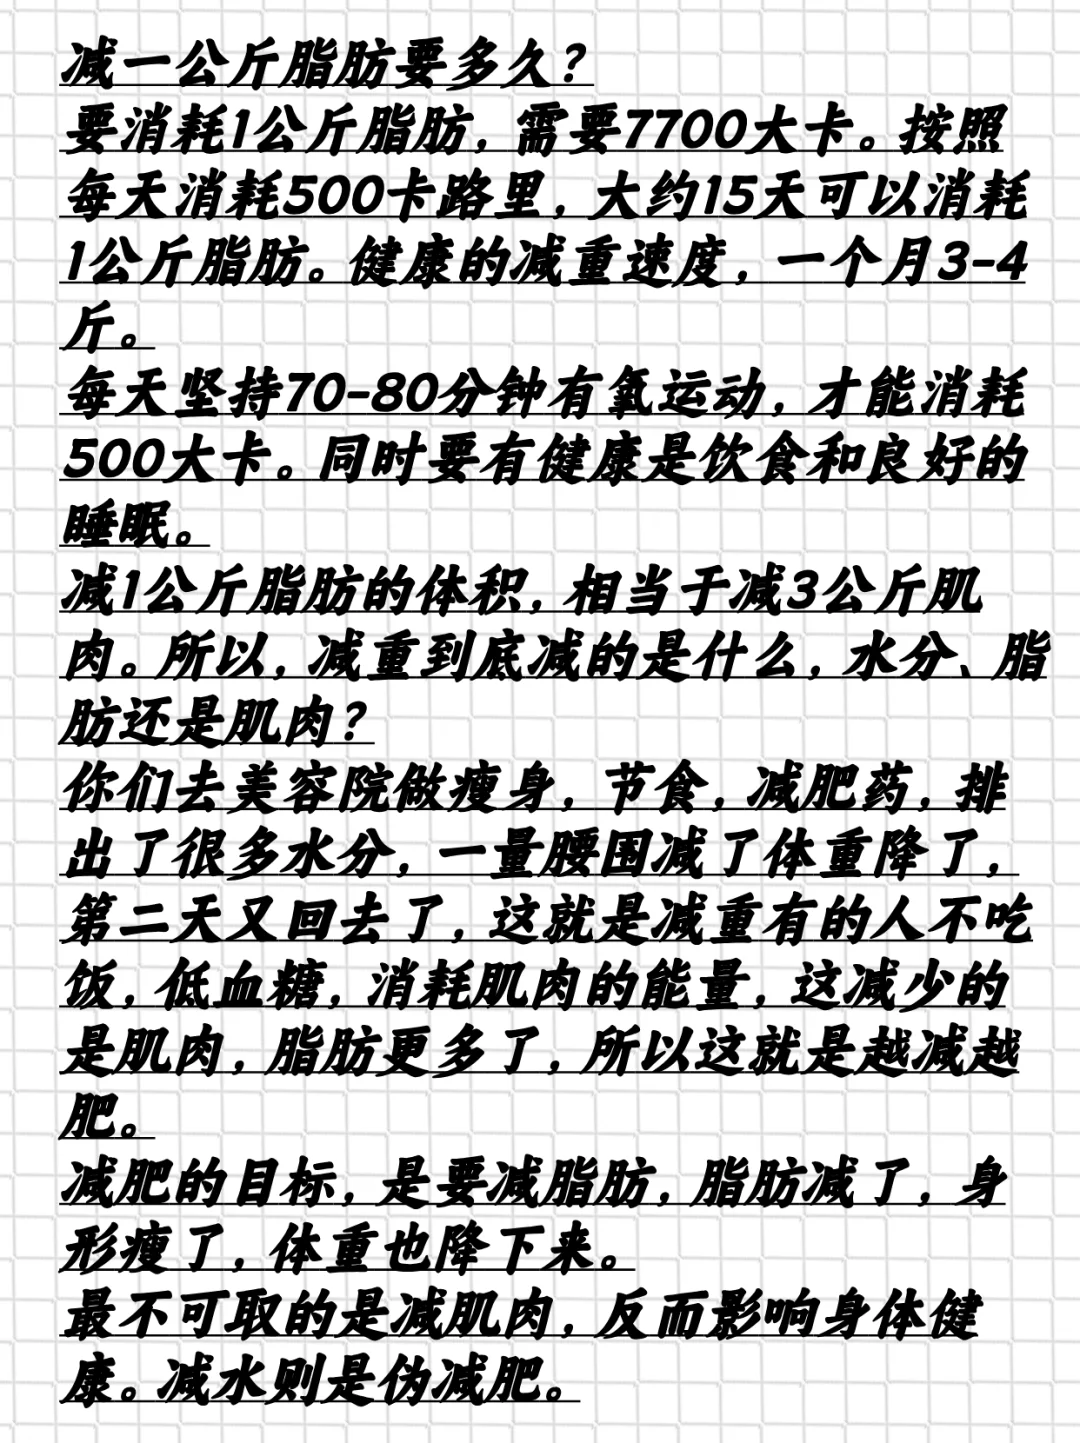 减一公斤脂肪要多久？
要消耗1公斤脂肪，需要7700大卡。按照
每天消耗500卡路里，大约15天可以消耗
1公斤脂肪。健康的减重速度，一个月3-4
斤。
每天坚持70-80分钟有氧运动，才能消耗
500大卡。同时要有健康是饮食和良好的
睡眠。
减1公斤脂肪的体积，相当于减3公斤肌
肉。所以，减重到底减的是什么，水分、脂
肪还是肌肉？
你们去美容院做瘦身，节食，减肥药，排
出了很多水分，一量腰围减了体重降了，
第二天又回去了，这就是减重有的人不吃
饭，低血糖，消耗肌肉的能量，这减少的
是肌肉，脂肪更多了，所以这就是越减越
肥。
减肥的目标，是要减脂肪，脂肪减了，身
形瘦了，体重也降下来。
最不可取的是减肌肉，反而影响身体健
康。减水则是伪减肥。